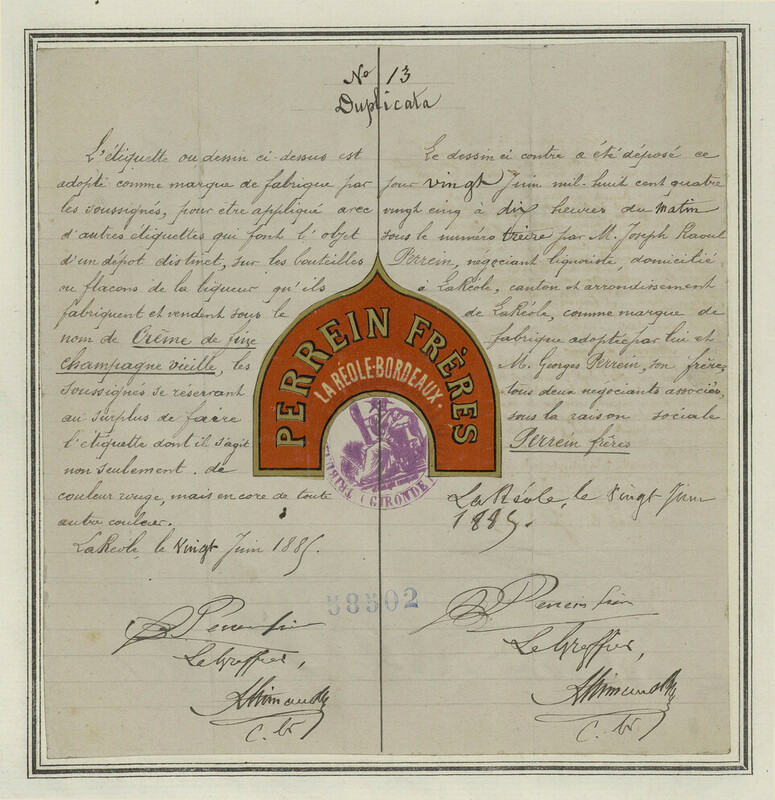 No 13
Duplicata
L'étiquette ou dessin ci-dessus est
adopté comme marque de fabrique par
les soussignés, pour être appliqué avec
d'autres étiquettes qui font l'objet
d'un dépot distinct, sur les bouteilles
ou flacons de la liqueur qu'ils
fabriquent et vendent sous le
nom de Crème de fine
champagne vieille, les
soussignés se réservant
au surplus de faire
l'étiquette dont il s'agit
non seulement de
couleur rouge, mais encore de toute
autre couleur.
LaRéole, le Vingt Juin 1885.
Perrein
Le Greffier,
Le dessin ci contre a été déposé ce
jour vingt Juin mil-huit cent quatre
vingt cinq à dix heures du matin
sous le numéro treize par M. Joseph Raoul
Perrein, négociant liquoriste, domicilié
à LaRéole, canton et arrondissement
de LaRéole, comme marque de
fabrique adoptée par lui et
M. Georges Perrein, son frère,
tous deux négociants associés,
sous la raison sociale
Perrein frères
LaRéole, le Vingt Juin
1885.
Perrein
Le Greffier,
PERREIN FRÈRES
LA RÉOLE-BORDEAUX.
(GIRONDE)
58502